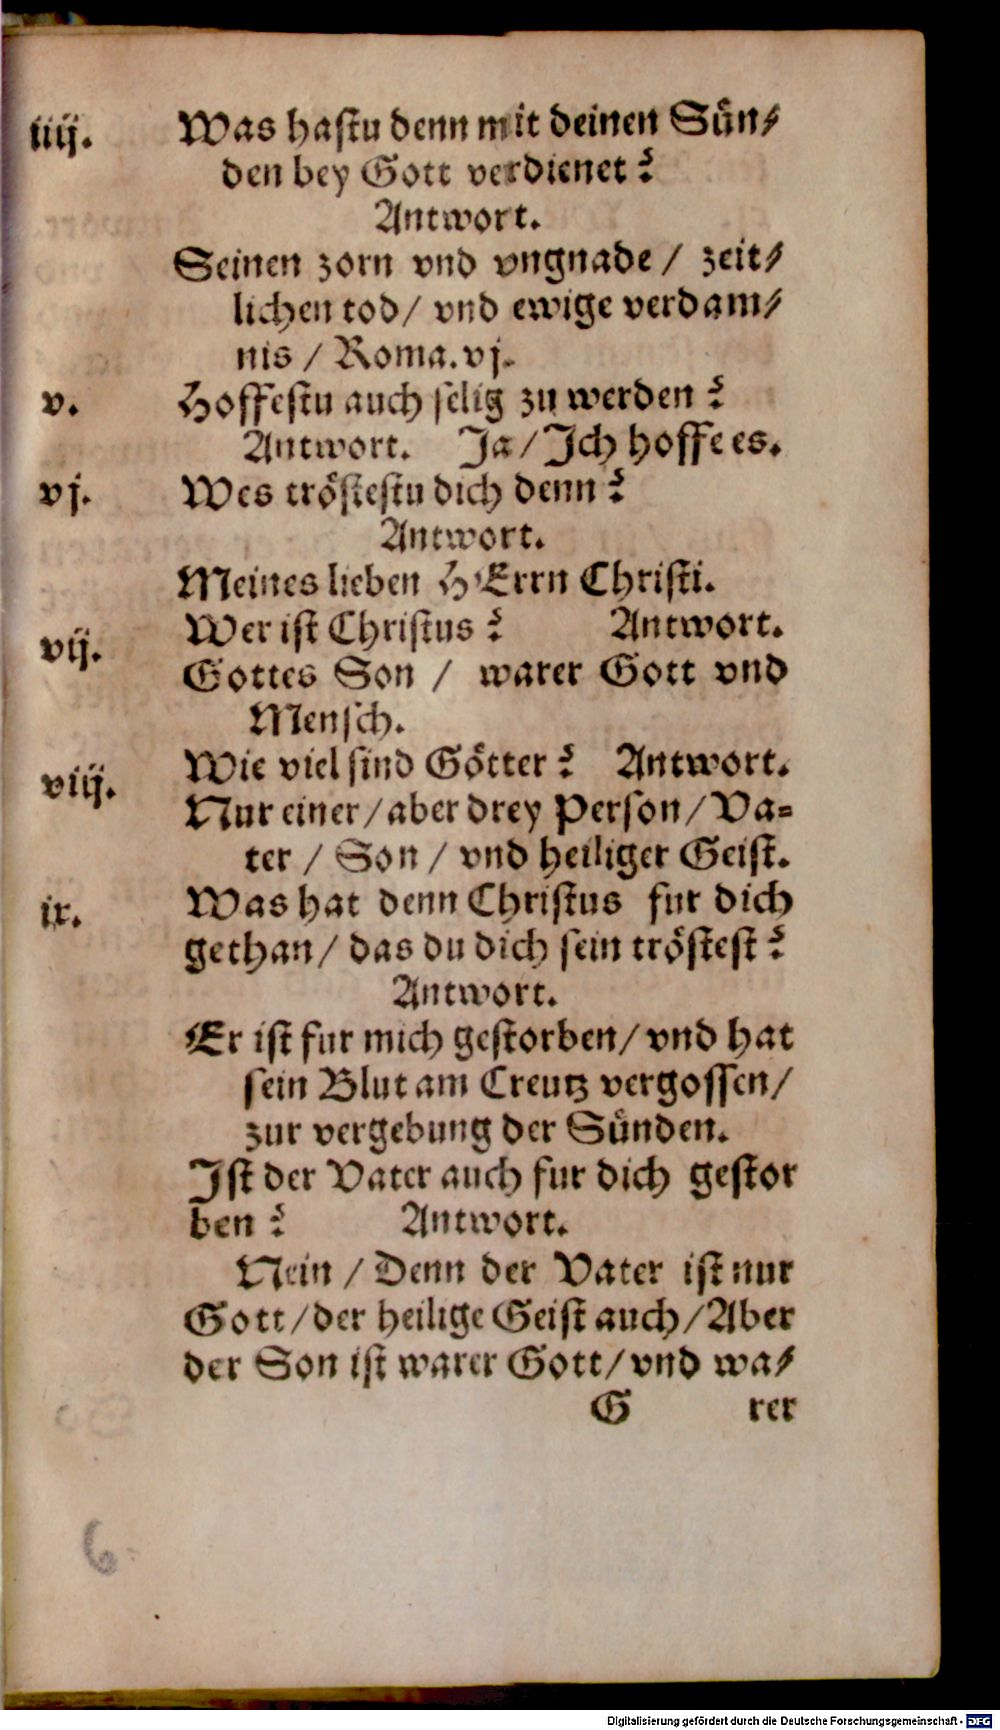 iiij. Was hastu denn mit deinen Sün/
den bey Gott verdienet?
Antwort.
Seinen zorn vnd vngnade / zeit/
lichen tod/ vnd ewige verdam/
nis / Roma.vj.
v. Hoffestu auch selig zu werden?
Antwort. Ja/Ich hoffe es.
vj. Wes tröstestu dich denn?
Antwort.
Meines lieben HErrn Christi.
vij. Wer ist Christus? Antwort.
Gottes Son / warer Gott vnd
Mensch.
viij. Wie viel sind Götter? Antwort.
Nur einer/aber drey Person/Va=
ter / Son / vnd heiliger Geist.
ix. Was hat denn Christus fur dich
gethan/ das du dich sein tröstest?
Antwort.
Er ist fur mich gestorben/ vnd hat
sein Blut am Creutz vergossen/
zur vergebung der Sünden.
Ist der Vater auch fur dich gestor
ben? Antwort.
Nein / Denn der Vater ist nur
Gott/der heilige Geist auch/Aber
der Son ist warer Gott/vnd wa/
G rer
6
Digitalisierung gefördert durch die Deutsche Forschungsgemeinschaft - DFG